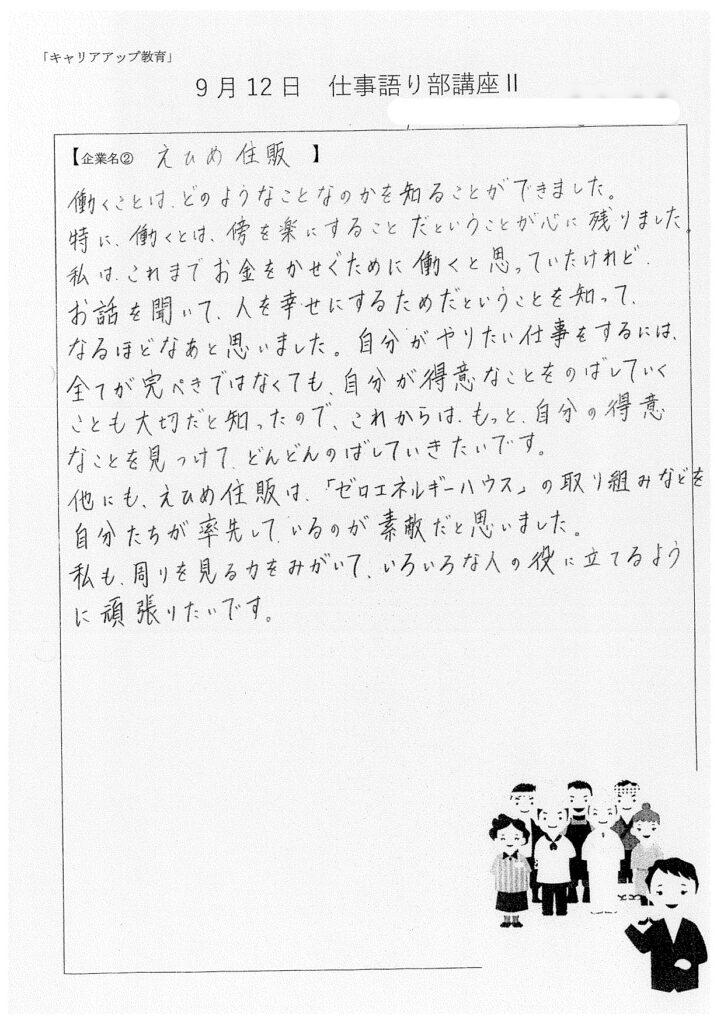 「キャリアアップ教育」
9月12日　仕事語り部講座Ⅱ
【企業名② えひめ住販 】
働くことは、どのようなことなのかを知ることができました。
特に、働くとは、傍を楽にすることだということが心に残りました。
私は、これまでお金をかせぐために働くと思っていたけれど、
お話を聞いて、人を幸せにするためだということを知って、
なるほどなあと思いました。自分がやりたい仕事をするには、
全てが完ぺきではなくても、自分が得意なことをのばしていく
ことも大切だと知ったので、これからは、もっと、自分の得意
なことを見つけて、どんどんのばしていきたいです。
他にも、えひめ住販は、「ゼロエネルギーハウス」の取り組みなどを
自分たちが率先して、いるのが素敵だと思いました。
私も、周りを見る力をみがいて、いろいろな人の役に立てるよう
に頑張りたいです。